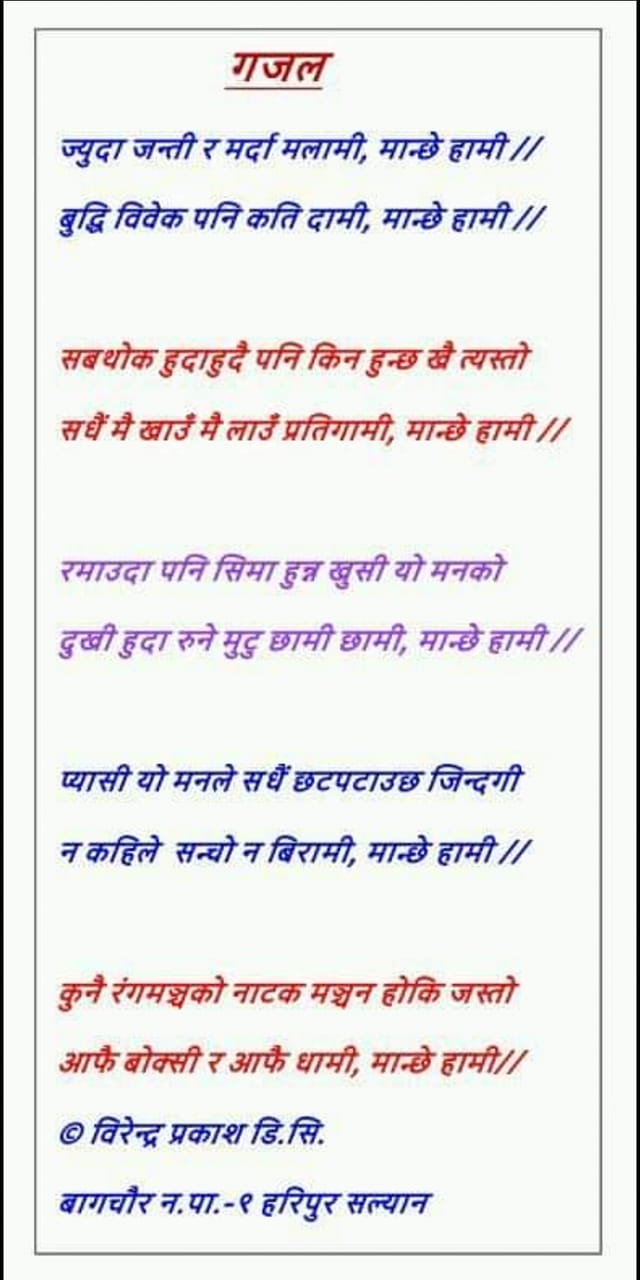 गजल
ज्युदा जन्ती र मर्दा मलामी, मान्छे हामी //
बुद्धि विवेक पनि कति दामी, मान्छे हामी //
सबथोक हुदाहुदै पनि किन हुन्छ खै त्यस्तो
सधैं मै खाउँ मै लाउँ प्रतिगामी, मान्छे हामी //
रमाउदा पनि सिमा हुन्न खुसी यो मनको
दुखी हुदा रुने मुटु छामी छामी, मान्छे हामी //
प्यासी यो मनले सधैं छटपटाउछ जिन्दगी
न कहिले सन्चो न बिरामी, मान्छे हामी //
कुनै रंगमञ्चको नाटक मञ्चन होकि जस्तो
आफै बोक्सी र आफै धामी, मान्छे हामी//
© विरेन्द्र प्रकाश डि.सि.
बागचौर न.पा.-१ हरिपुर सल्यान